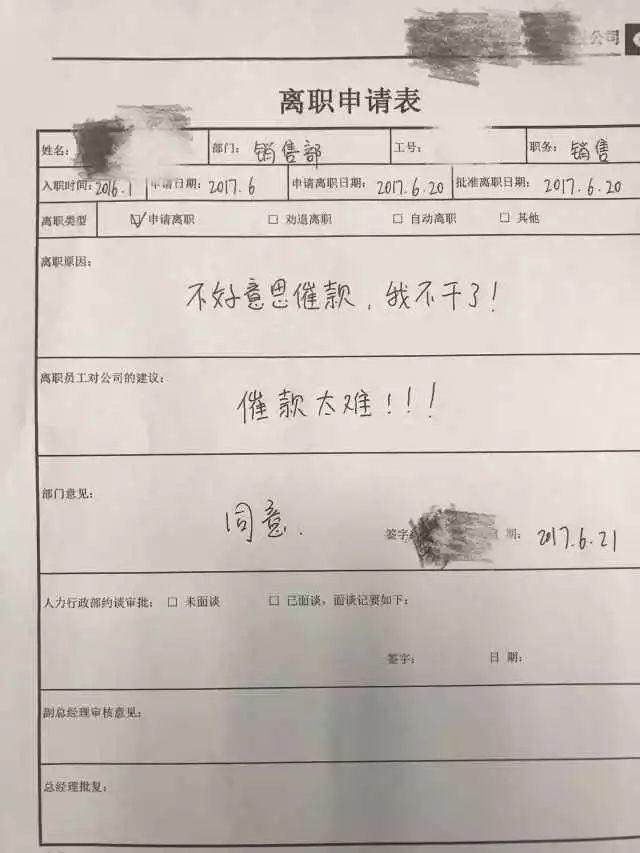 公司
离职申请表
姓名: 部门: 销售部 工号: 职务: 销售
入职时间: 2016.1 申请日期: 2017.6 申请离职日期: 2017.6.20 批准离职日期: 2017.6.20
离职类型 ☑申请离职 □ 劝退离职 □ 自动离职 □ 其他
离职原因:
不好意思催款，我不干了!
离职员工对公司的建议:
催款太难!!!
部门意见:
同意.
签字: 期: 2017.6.21
人力行政部约谈审批: □ 未面谈 □ 已面谈，面谈记要如下:
签字: 日 期:
副总经理审核意见:
总经理批复: